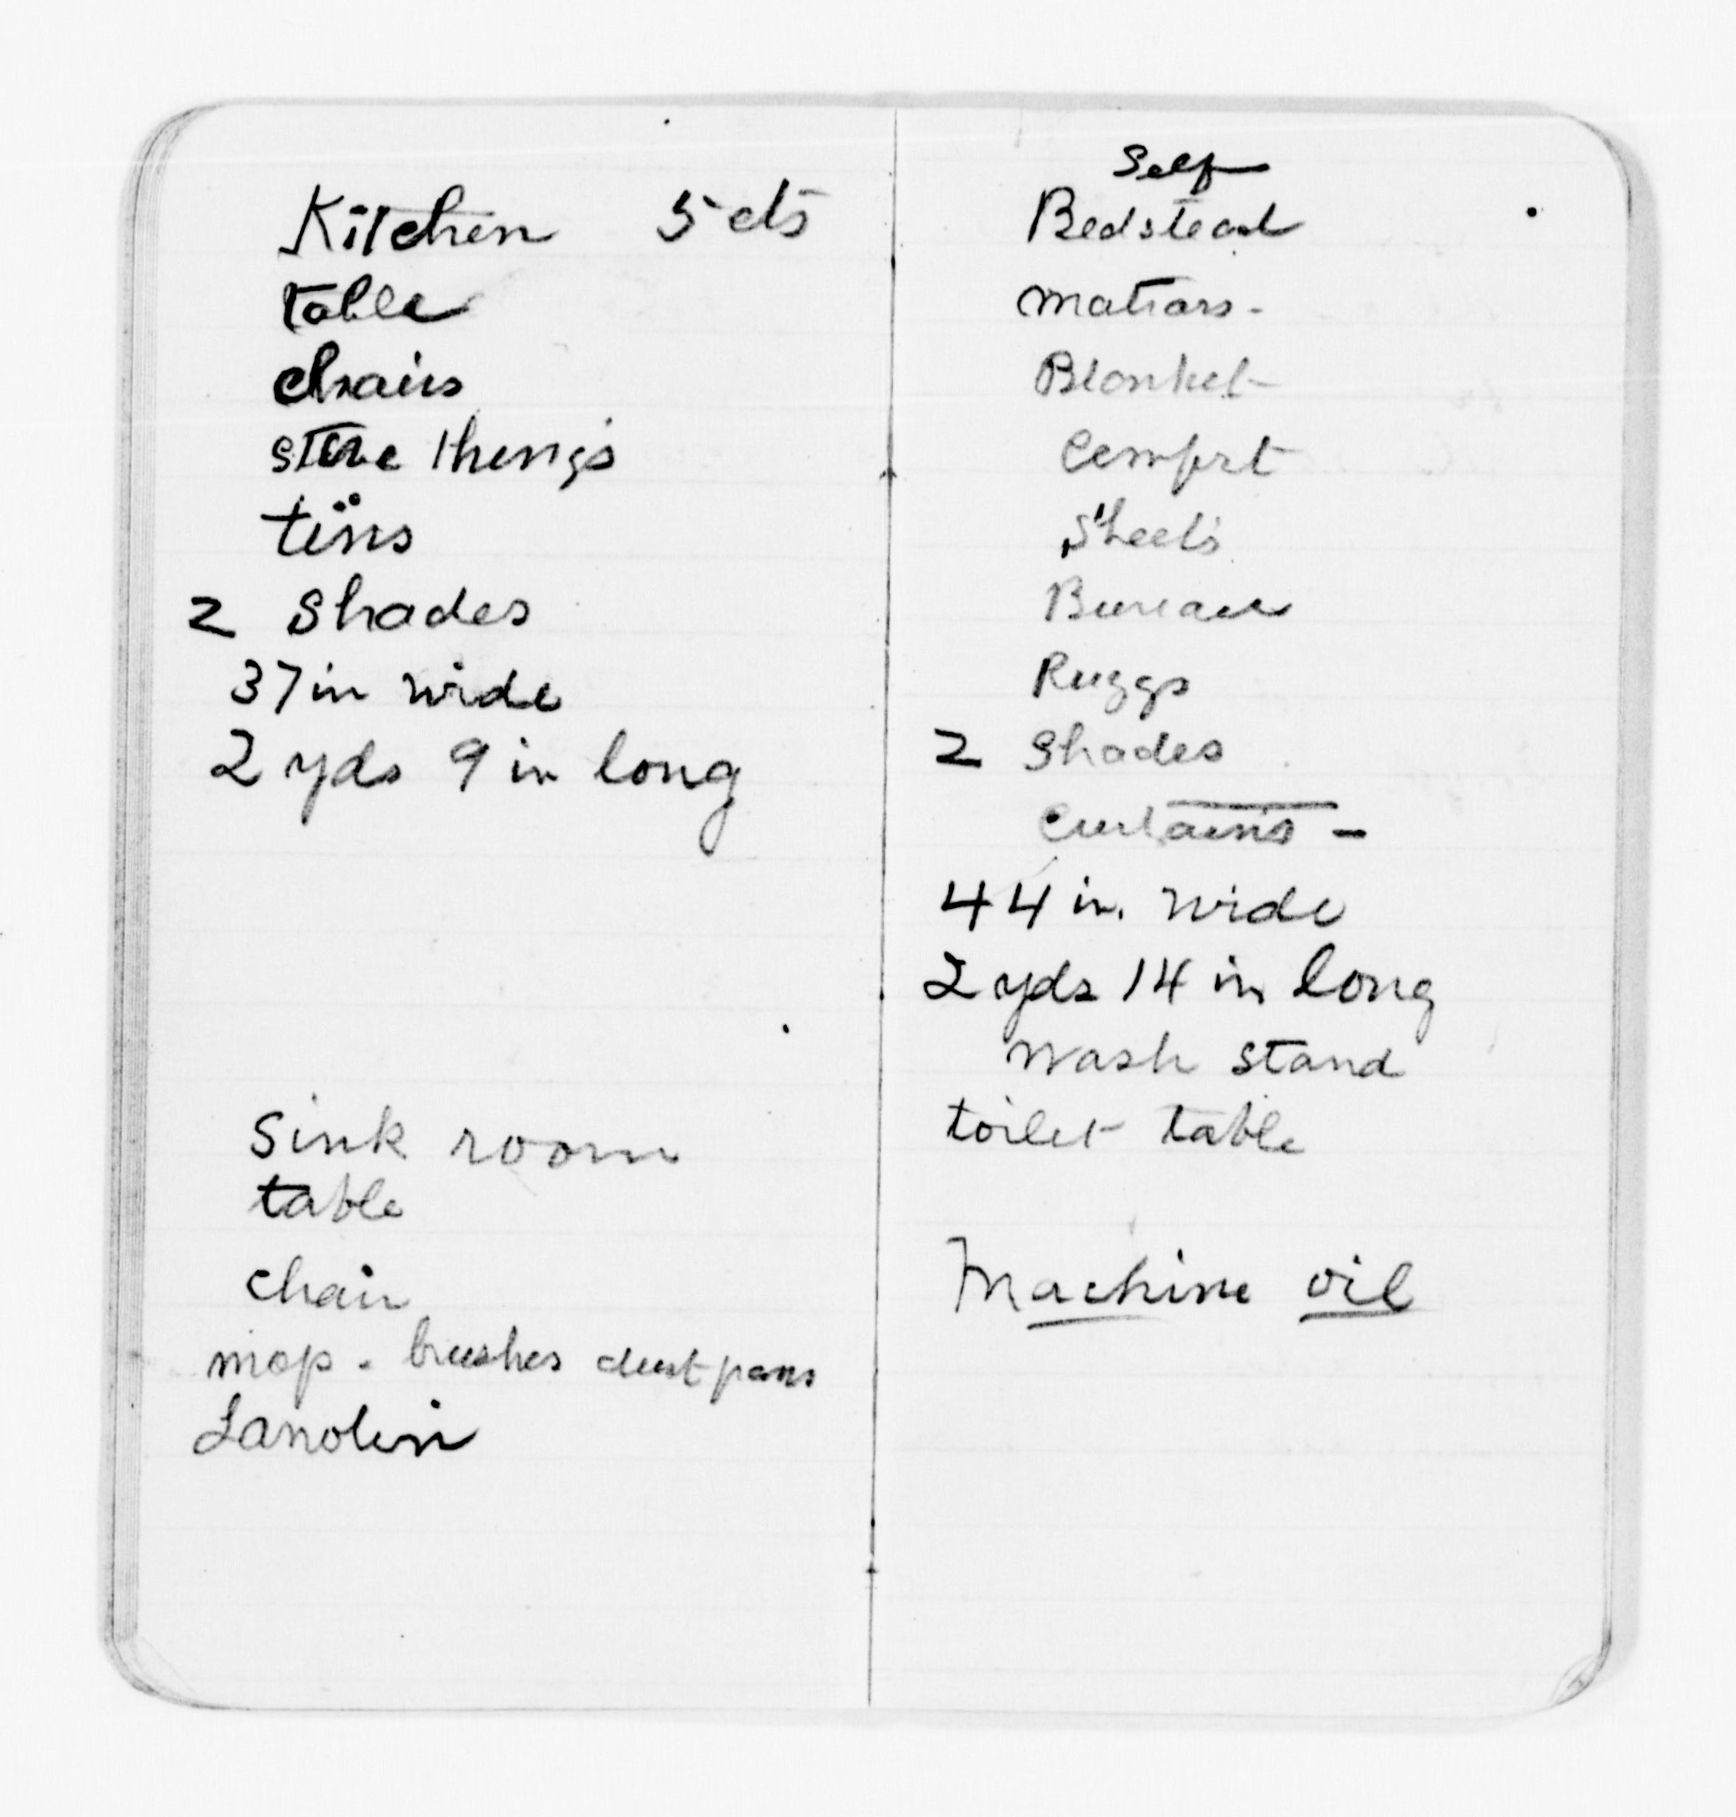 Kitchen 5 cts
table
chairs
stove things
tins
2 Shades
37 in wide
2 yds 9 in long
Sink room
table
chair
mop - brushes dust pans
Lanolin
Self
Bedstead
Matrass -
Blanket
Comfort
Sheets
Bureau
Ruggs
2 Shades
Curtains -
44 in. wide
2 yds 14 in long
Wash stand
toilet table
Machine oil